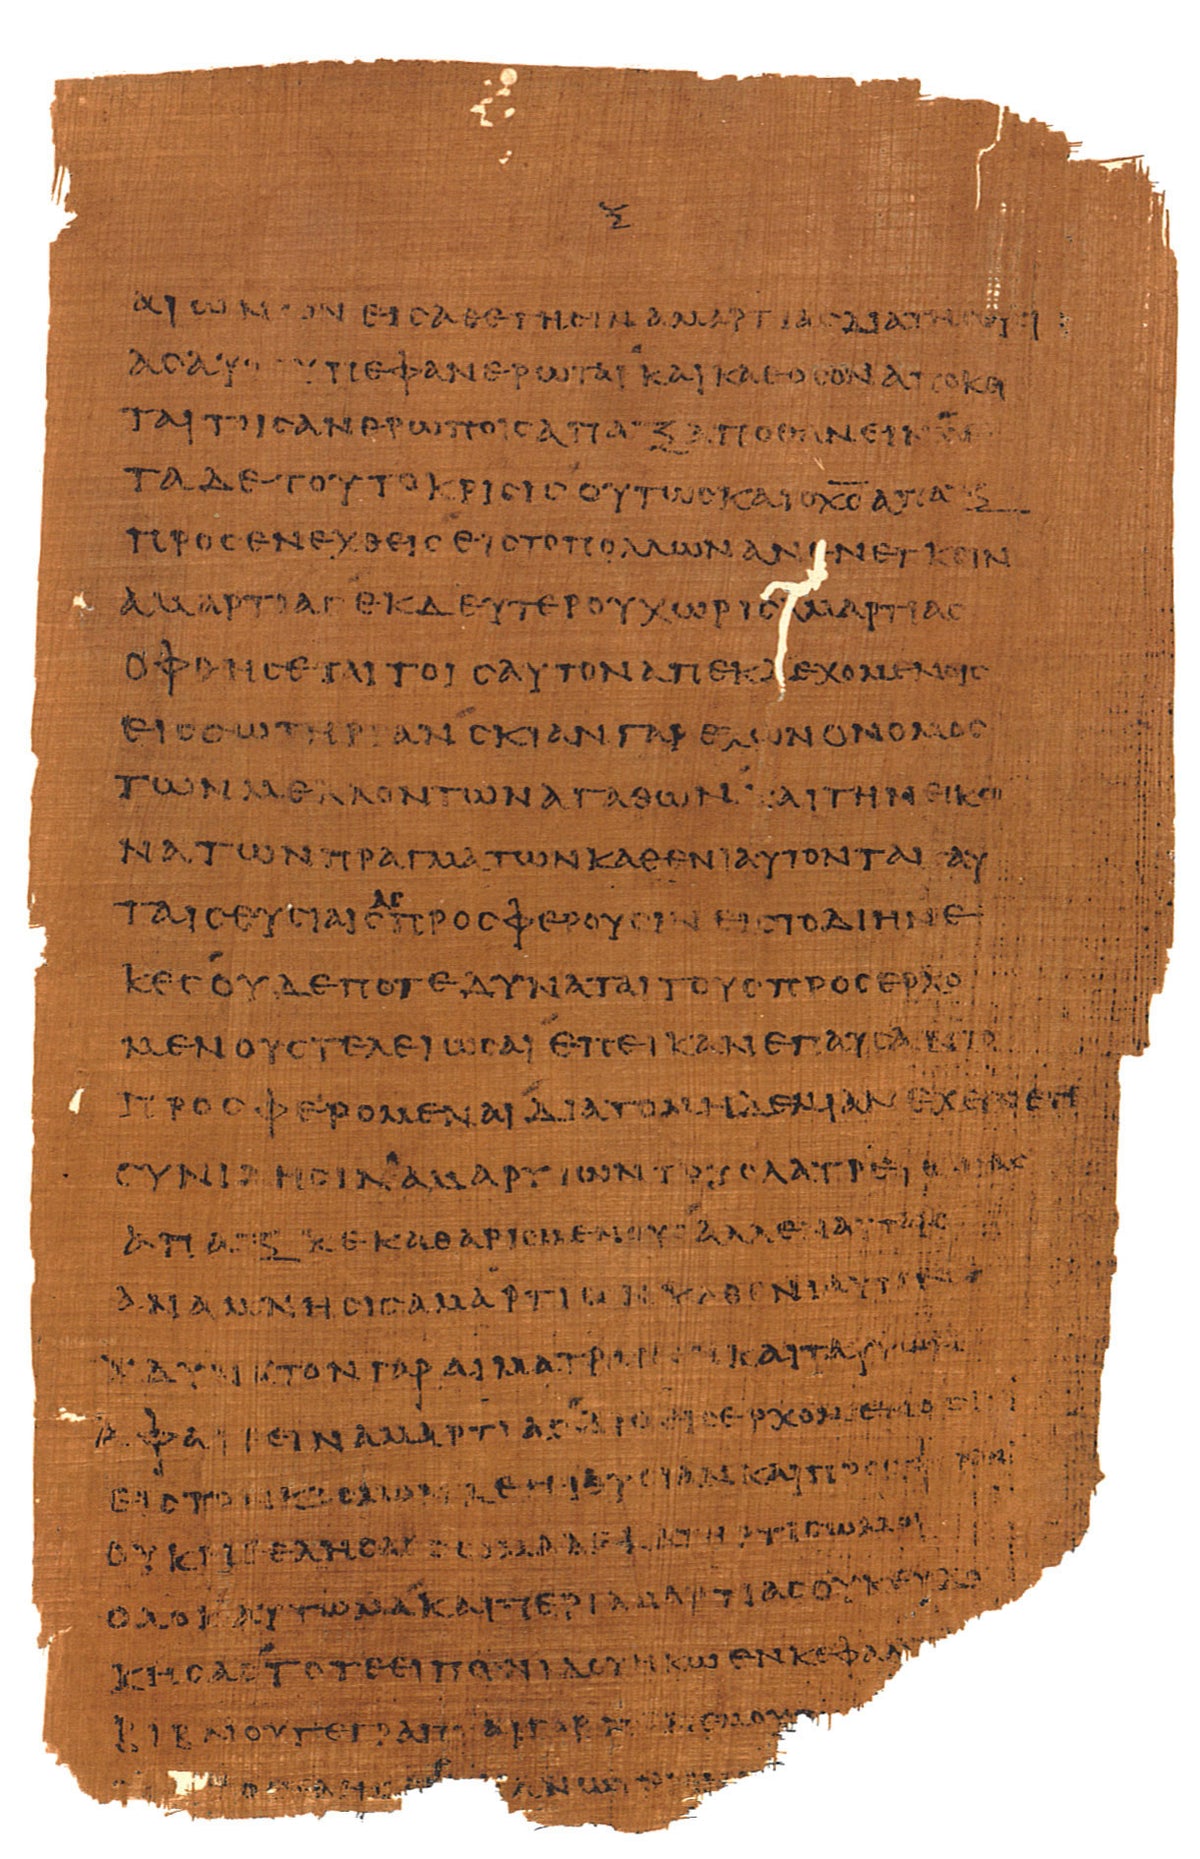 ξ
αιωνων εις αθετησιν αμαρτιας δια της θυσι
ας αυτου πεφανερωται και καθ οσον αποκει
ται τοις ανθρωποις απαξ αποθανειν
τα δε τουτο κρισις ουτως και ο χς απαξ
προσενεχθεις εις το πολλων ανενεγκειν
αμαρτιας εκ δευτερου χωρις αμαρτιας
οφθησεται τοις αυτον απεκδεχομενοις
εις σωτηριαν σκιαν γαρ εχων ο νομος
των μελλοντων αγαθων και την εικο
να των πραγματων καθ ενιαυτον ται αυ
ταις θυσιαις ας προσφερουσιν εις το διηνε
κες ουδεποτε δυναται τους προσερχο
μενους τελειωσαι επει καν επαυσαντο
προσφερομεναι δια το μηδεμιαν εχειν ετι
συνιδησιν αμαρτιων τους λατρευοντας
απαξ κεκαθαρισμενους αλλ εν αυταις
αναμνησις αμαρτιων καθ ενιαυτον
αδυνατον γαρ αιμα τραγων και ταυρων
αφαιρειν αμαρτιας διο εισερχομενος
εις τον κοσμον λεγει θυσιαν και προσφοραν
ουκ ηθελησας σωμα δε κατηρτισω μοι
ολοκαυτωμα και περι αμαρτιας ουκ ευδο
κησας τοτε ειπον ιδου ηκω εν κεφαλι
βιβλιου γεγραπται γαρ περι εμου